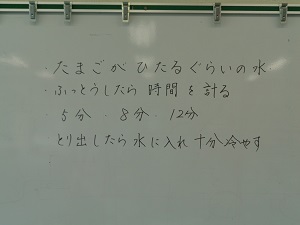 ・たまごがひたるぐらいの水
・ふっとうしたら時間を計る
・5分・8分・12分
とり出したら水に入れ十分冷やす